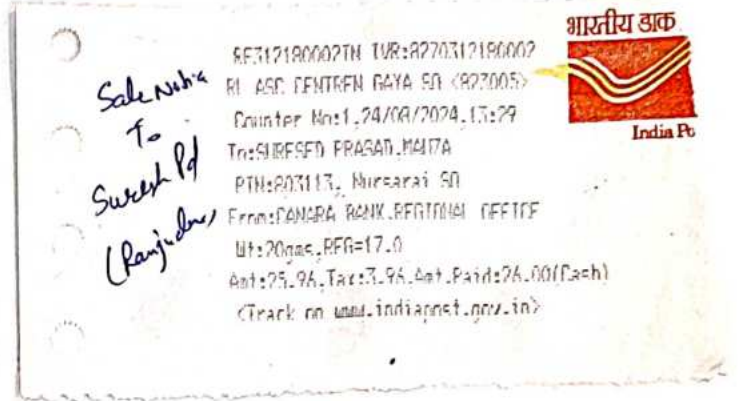 भारतीय डाक
India Po
RF312180002IN IVR:8270312180002
RL ASC CENTREN GAYA SO <823005>
Counter No:1,24/08/2024,13:29
To:SURESED PRASAD,MAUZA
PIN:803113, Nursarai SO
From:CANARA BANK,REGIONAL OFFICE
Wt:20gms,REG=17.0
Amt:25.96,Tax:3.96,Amt.Paid:26.00(Cash)
<Track on www.indiapost.gov.in>
Sale Notice
To
Suresh Pd